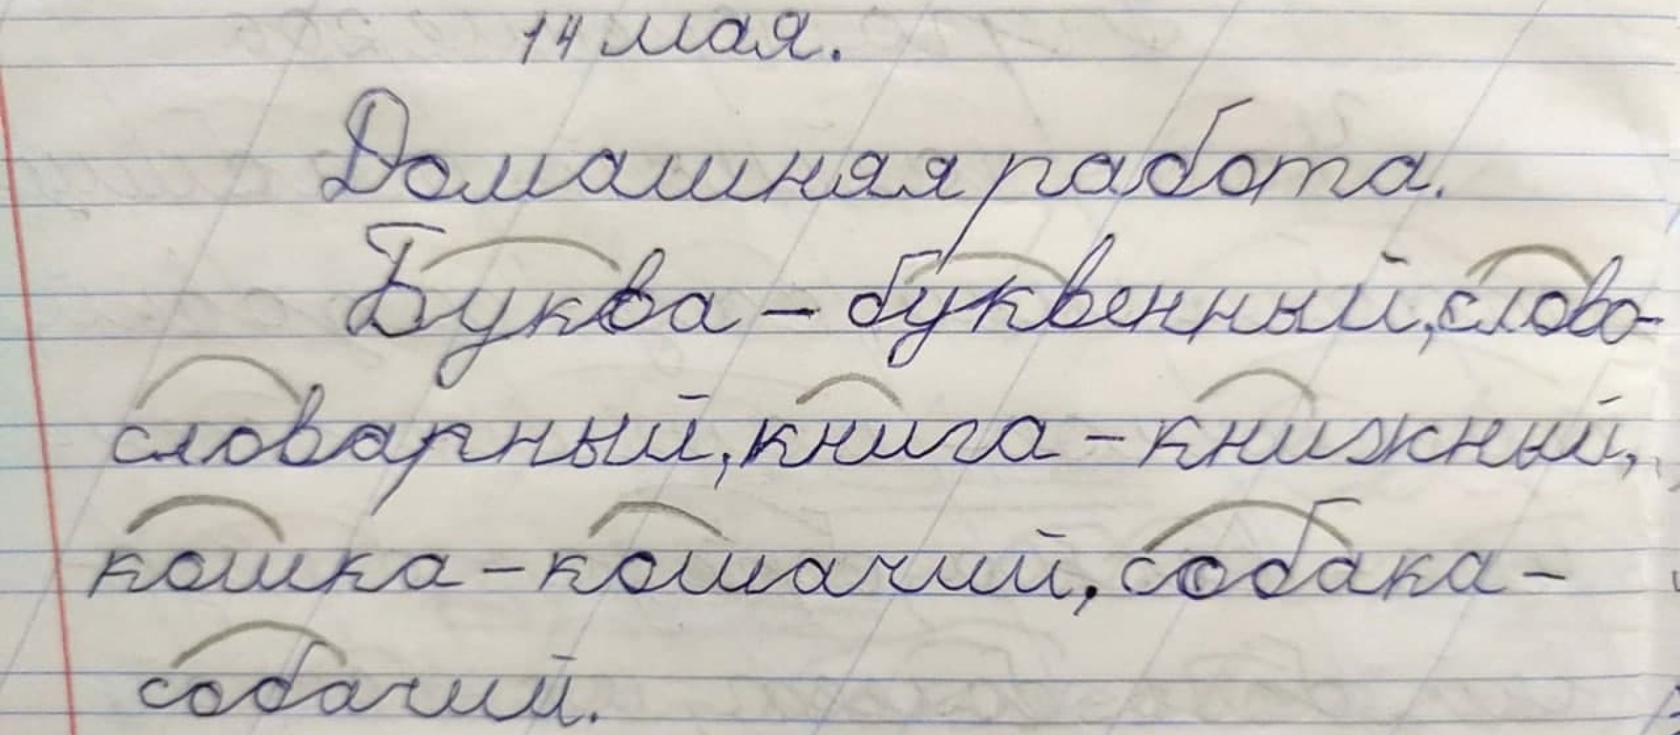 14 мая.
Домашняя работа.
Буква - буквенный, слово-
словарный, книга - книжный,
кошка - кошачий, собака -
собачий.